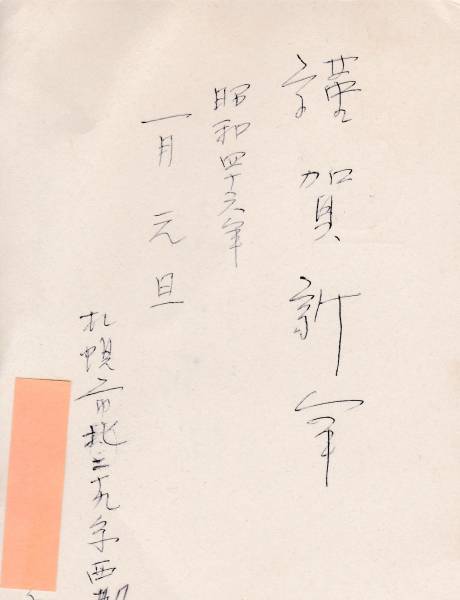 謹賀新年
昭和四十六年
一月元旦
札幌市北二十九条西